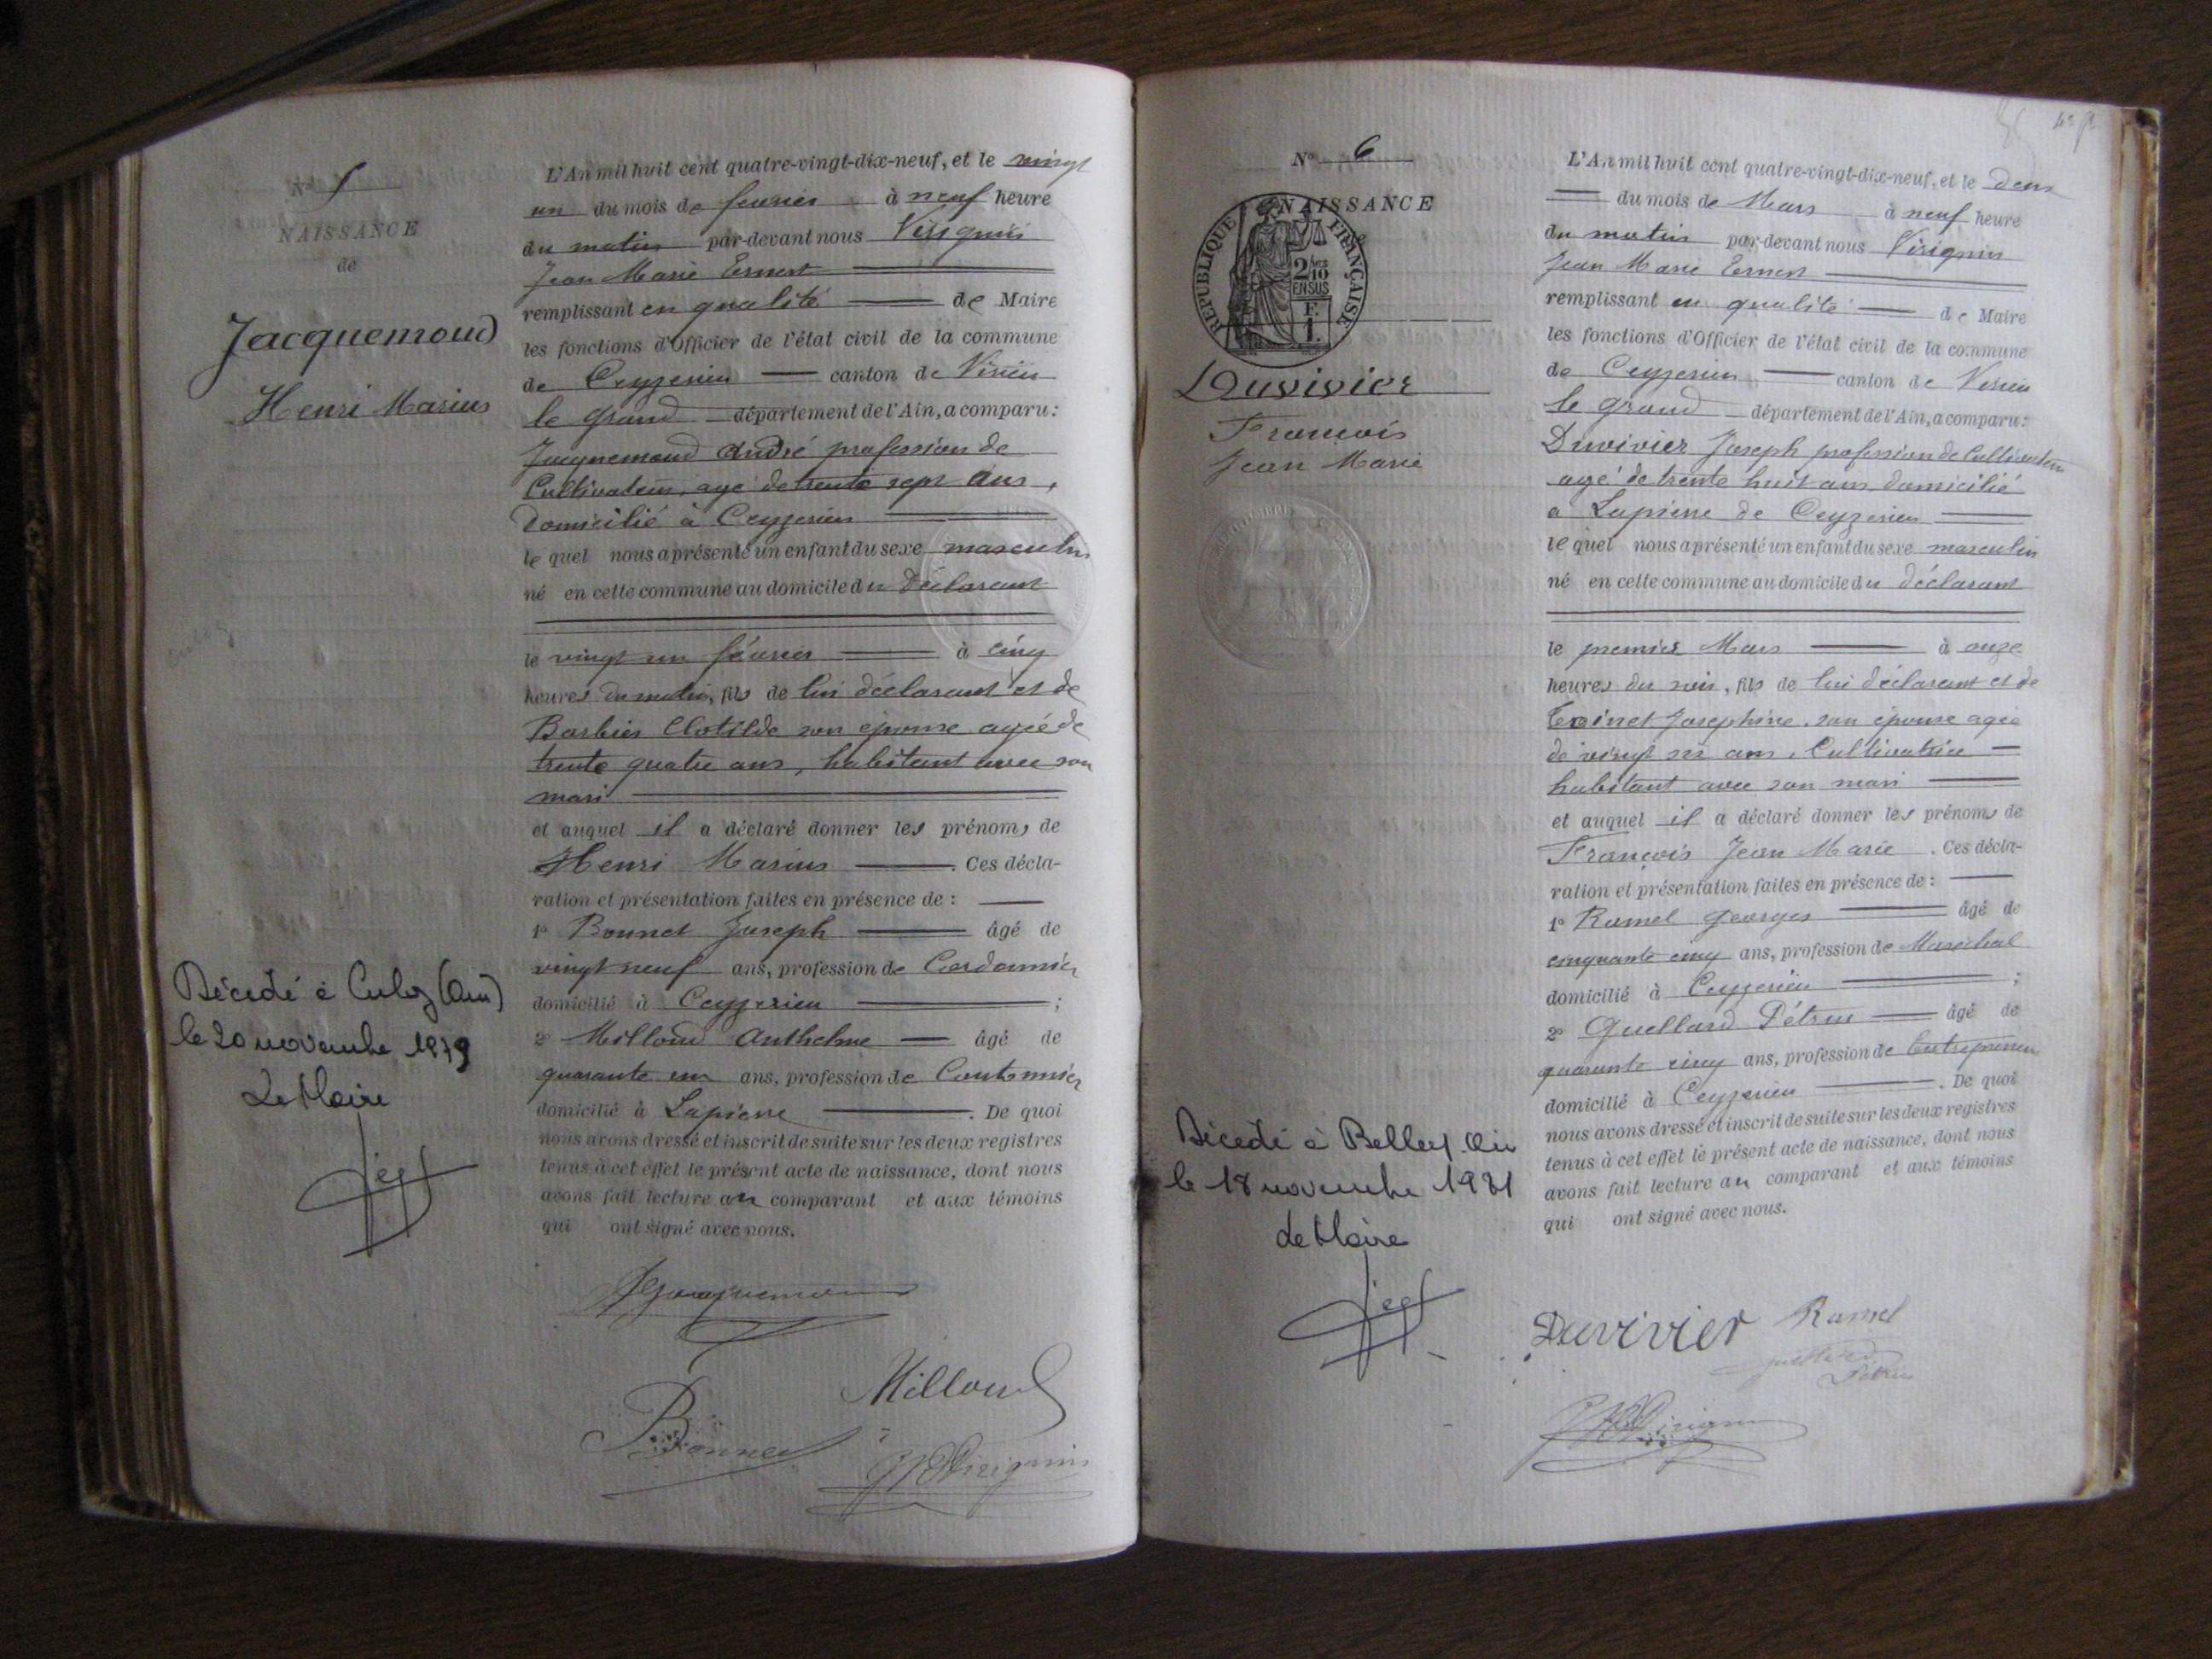 N° 5
NAISSANCE
de
Jacquemoud
Henri Marius
Décédé à Culoz (Ain)
le 20 novembre 1979
Le Maire
L'An mil huit cent quatre-vingt-dix-neuf, et le vingt
un du mois de fevrier à neuf heure
du matin par-devant nous Virignin
Jean Marie Ernest
remplissant en qualité de Maire
les fonctions d'Officier de l'état civil de la commune
de Ceyzerieu canton de Virieu
le grand département de l'Ain, a comparu :
Jacquemoud André profession de
Cultivateur, agé de trente sept ans,
Domicilié à Ceyzerieu
le quel nous a présenté un enfant du sexe masculin
né en cette commune au domicile du Déclarant
le vingt un février à cinq
heures du matin, fils de lui déclarant et de
Barbier Clotilde son épouse agée de
trente quatre ans, habitant avec son
mari
et auquel il a déclaré donner les prénoms de
Henri Marius . Ces décla-
ration et présentation faites en présence de :
1° Bonnet Joseph âgé de
vingt neuf ans, profession de Cordonnier
domicilié à Ceyzerieu ;
2° Milloud Anthelme âgé de
quarante un ans, profession de Cantonnier
domicilié à Lapierre . De quoi
nous avons dressé et inscrit de suite sur les deux registres
tenus à cet effet le présent acte de naissance, dont nous
avons fait lecture au comparant et aux témoins
qui ont signé avec nous.
Jacquemoud
Milloud
Bonnet
Virignin
N° 6
NAISSANCE
REPUBLIQUE FRANÇAISE
2/10
EN SUS
F.
1.
Duvivier
François
Jean Marie
Décédé à Belley Ain
le 18 novembre 1981
Le Maire
L'An mil huit cent quatre-vingt-dix-neuf, et le deux
du mois de Mars à neuf heure
du matin par-devant nous Virignin
Jean Marie Ernest
remplissant en qualité de Maire
les fonctions d'Officier de l'état civil de la commune
de Ceyzerieu canton de Virieu
le grand département de l'Ain, a comparu :
Duvivier Joseph profession de Cultivateur
agé de trente huit ans domicilié
a Lapierre de Ceyzerieu
le quel nous a présenté un enfant du sexe masculin
né en cette commune au domicile du déclarant
le premier Mars à onze
heures du soir, fils de lui déclarant et de
Josephine son épouse agée
de vingt six ans, Cultivatrice
habitant avec son mari
et auquel il a déclaré donner les prénoms de
François Jean Marie . Ces décla-
ration et présentation faites en présence de :
1° Ramel Georges âgé de
cinquante cinq ans, profession de Maréchal
domicilié à Ceyzerieu ;
2° Guellard Pétrus âgé de
quarante cinq ans, profession de Entrepreneur
domicilié à Ceyzerieu . De quoi
nous avons dressé et inscrit de suite sur les deux registres
tenus à cet effet le présent acte de naissance, dont nous
avons fait lecture au comparant et aux témoins
qui ont signé avec nous.
Duvivier Ramel
Pétrus
Virignin